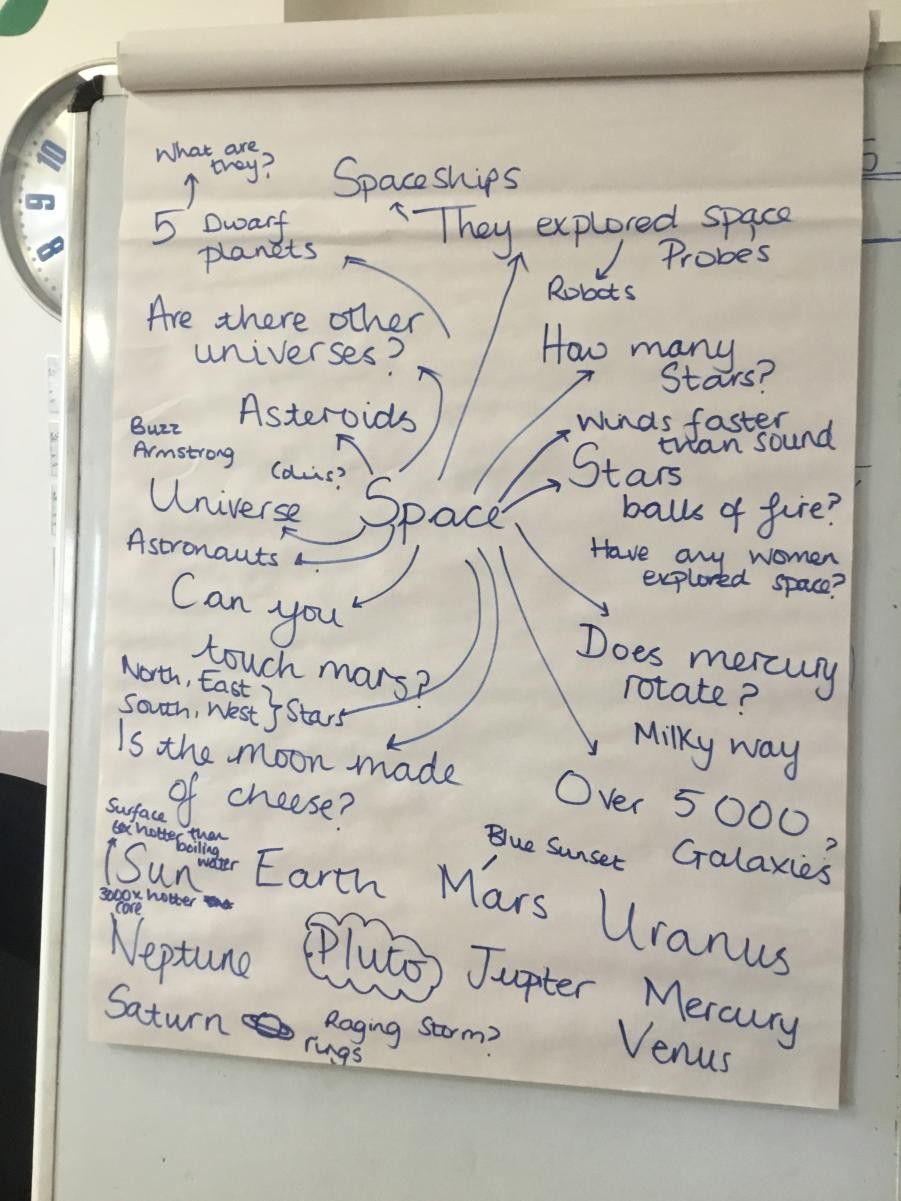 What are
they?
Spaceships
5 Dwarf
planets
They explored space
Probes
Robots
Are there other
universes?
How many
Stars?
Asteroids
Winds faster
than sound
Buzz
Armstrong
Stars
balls of fire?
Universe
Space
Astronauts
Have any women
explored space?
Can you
touch mars?
Does mercury
rotate?
North, East
South, West } Stars
Milky way
Is the moon made
of cheese?
Over 5000
Galaxies?
Surface
6x hotter than
boiling
water
Blue Sunset
Sun
Earth
Mars
Uranus
3000x hotter
core
Neptune
Pluto
Jupter
Mercury
Saturn
Raging Storm?
rings
Venus
10
9
8
5